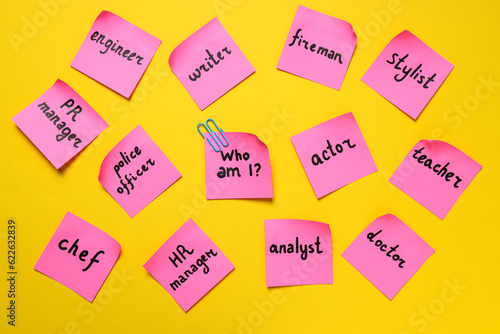 engineer
writer
fireman
stylist
PR
manager
police
officer
Who
am I?
actor
teacher
chef
HR
manager
analyst
doctor
Adobe Stock | #622632839